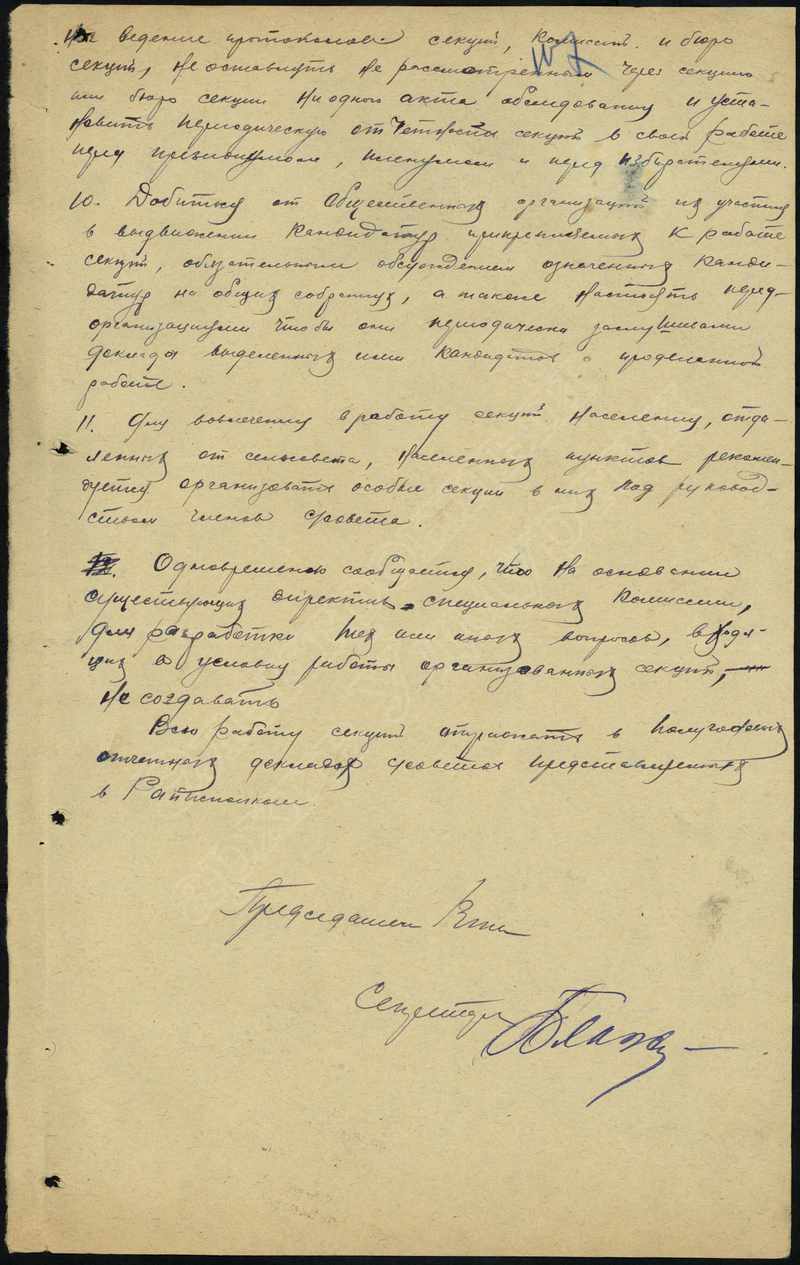 на ведение протоколов секций, комиссий и бюро
секций, не оставлять не рассмотренным через секцию
или бюро секции ни одного акта обследования и уста-
новить периодическую отчетность секций в своей работе
перед президиумом, пленумом и перед избирателями.
10. Добиться от общественных организаций их участия
в выдвижении кандидатур прикрепляемых к работе
секций, обязательным обсуждением означенных канди-
датур на общих собраниях, а также настоять перед
организациями чтобы они периодически заслушивали
доклады выделенных ими кандидатов о проделанной
работе.
11. Для вовлечения в работу секций населения, отда-
ленных от сельсовета, населенных пунктов рекомен-
дуется организовать особые секции в них под руковод-
ством членов совета.
12. Одновременно сообщается, что на основании
существующих директив специальных комиссий,
для разработки тех или иных вопросов, входя-
щих в условия работы организованных секций,
не создавать
Всю работу секций отражать в полугодовых
отчетных докладах советов представляемых
в Райисполком.
Председатель
Секретарь